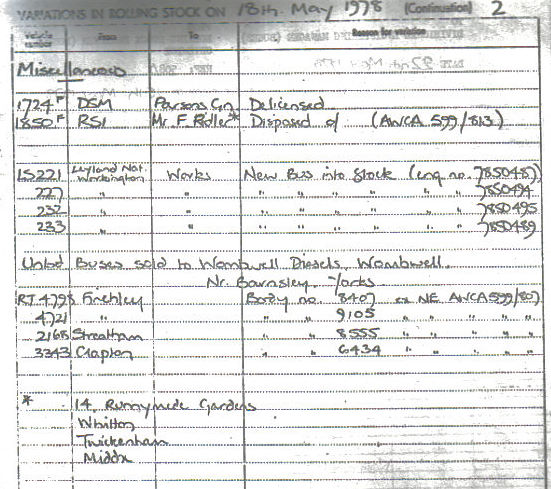 VARIATIONS IN ROLLING STOCK ON 18th. May 1978 (Continuation) 2
Vehicle number From To Reason for variation
Miscellaneous
1724F DSM Parsons Gn Delicensed
1850F RSI Mr. F. Ridler* Disposed of (AWCA 599/813)
LS221 Leyland Nat. Workington Works New Bus into Stock (eng no. 7850487)
227 " " " " " " " " 7850494
232 " " " " " " " " 7850495
233 " " " " " " " " 7850489
Unlsd Buses sold to Wombwell Diesels, Wombwell.
Nr. Barnsley. Yorks
RT 4798 Finchley Body no. 8407 ex NE AWCA 599/807
4721 " " " 9105 " " " "
2168 Streatham " " 8555 " " " "
3343 Clapton " " 6434 " " " "
* 14, Runnymede Gardens
Whitton
Twickenham
Middx